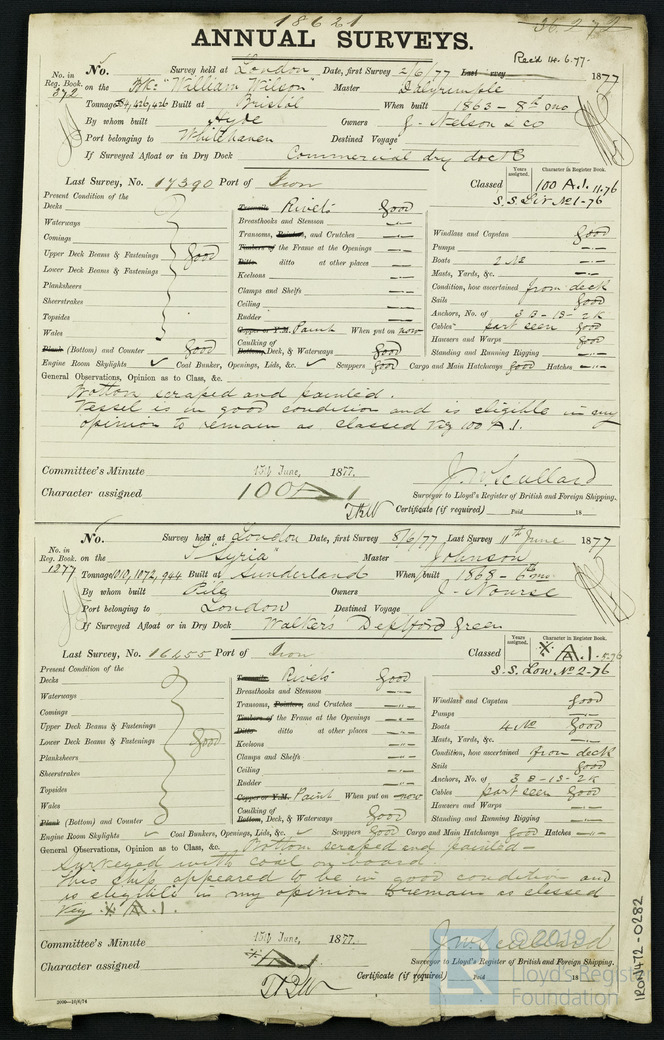 18621
36.272
ANNUAL SURVEYS.
Recd 14.6.77.
No. in Reg. Book. 372
No. Survey held at London Date, first Survey 2/6/77 Last Survey 1877
on the Bk: "William Wilson" Master Dalrymple
Tonnage 426,426 Built at Bristol When built 1863 - 8th mo
By whom built Hyde Owners J. Nelson & Co
Port belonging to Whitehaven Destined Voyage
If Surveyed Afloat or in Dry Dock Commercial dry dock
Last Survey, No. 17390 Port of Iron Classed
Years assigned. Character in Register Book.
100 A.1. 11.76
S.S. Lir No 1-76
Present Condition of the
Decks
Waterways
Comings
Upper Deck Beams & Fastenings good
Lower Deck Beams & Fastenings
Planksheers
Sheerstrakes
Topsides
Wales
Plank (Bottom) and Counter good
Treenails Rivets good
Breasthooks and Stemson -"-
Transoms, Pointers, and Crutches -"-
Timbers of the Frame at the Openings -"-
Ditto ditto at other places -"-
Keelsons -"-
Clamps and Shelfs -"-
Ceiling -"-
Rudder -"-
Copper or Y.M. Paint When put on now
Caulking of Bottom, Deck, & Waterways good
Windlass and Capstan good
Pumps -"-
Boats 2 No -"-
Masts, Yards, &c. -"-
Condition, how ascertained from deck
Sails good
Anchors, No. of 3 B - 1 S - 2 K
Cables part seen good
Hawsers and Warps good
Standing and Running Rigging -"-
Engine Room Skylights ✓ Coal Bunker, Openings, Lids, &c. ✓ Scuppers good Cargo and Main Hatchways good Hatches -"-
General Observations, Opinion as to Class, &c.
Bottom scraped and painted.
Vessel is in good condition and is eligible in my
opinion to remain as classed viz 100 A.1.
Committee's Minute 15th June, 1877.
Character assigned 100 A 1
J.W. Scullard
Surveyor to Lloyd's Register of British and Foreign Shipping.
Certificate (if required) Paid 18
No. in Reg. Book. 1277
No. Survey held at London Date, first Survey 5/6/77 Last Survey 11th June 1877
on the S "Syria" Master Johnson
Tonnage 1010, 1072, 944 Built at Sunderland When built 1868 - 6th mo
By whom built Pile Owners J. Nourse
Port belonging to London Destined Voyage
If Surveyed Afloat or in Dry Dock Walkers Deptford Green
Last Survey, No. 16455 Port of Iron Classed
Years assigned. Character in Register Book.
A.1. 5.76
S.S. Low No 2-76
Present Condition of the
Decks
Waterways
Comings
Upper Deck Beams & Fastenings
Lower Deck Beams & Fastenings good
Planksheers
Sheerstrakes
Topsides
Wales
Plank (Bottom) and Counter
Treenails Rivets Good
Breasthooks and Stemson -"-
Transoms, Pointers, and Crutches -"-
Timbers of the Frame at the Openings -"-
Ditto ditto at other places -"-
Keelsons -"-
Clamps and Shelfs -"-
Ceiling -"-
Rudder -"-
Copper or Y.M. Paint When put on now
Caulking of Bottom, Deck, & Waterways Good
Windlass and Capstan good
Pumps -"-
Boats 4 No Good
Masts, Yards, &c. -"-
Condition, how ascertained from deck
Sails good
Anchors, No. of 3 B - 1 S - 2 K
Cables part seen Good
Hawsers and Warps -"-
Standing and Running Rigging -"-
Engine Room Skylights ✓ Coal Bunkers, Openings, Lids, &c. ✓ Scuppers Good Cargo and Main Hatchways Good Hatches -"-
General Observations, Opinion as to Class, &c. Bottom scraped and painted -
Surveyed with coal on board.
This ship appeared to be in good condition and
is eligible in my opinion to remain as classed
Viz A.1.
Committee's Minute 15th June, 1877.
Character assigned A 1
J.W. Scullard
Surveyor to Lloyd's Register of British and Foreign Shipping.
Certificate (if required) Paid 18
2000-10/6/74
© 2019
Lloyd's Register
Foundation
IRON472-0282